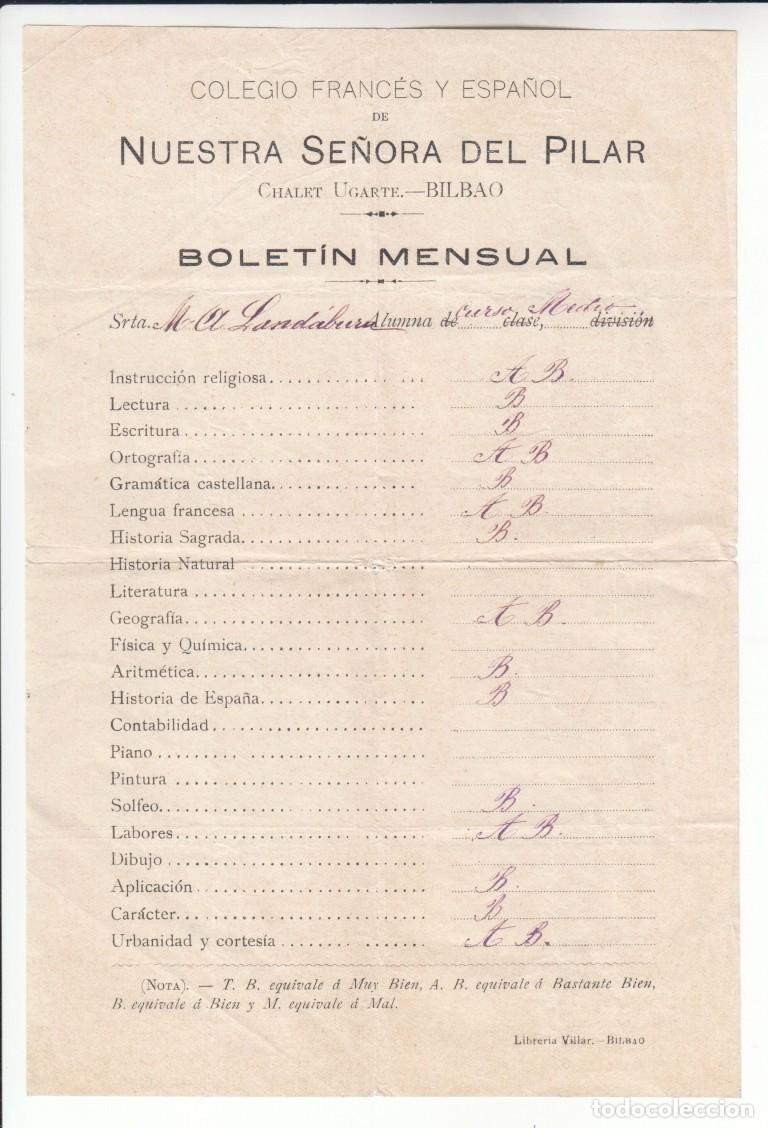 COLEGIO FRANCÉS Y ESPAÑOL
DE
NUESTRA SEÑORA DEL PILAR
CHALET UGARTE.—BILBAO
BOLETÍN MENSUAL
Srta. M A Landáburu Alumna de curso Medio clase, división
Instrucción religiosa.............. ... A B.
Lectura ........................ B
Escritura ........................ B
Ortografía........................ A B
Gramática castellana............... B
Lengua francesa .................. A B.
Historia Sagrada.................. B.
Historia Natural ..................
Literatura ........................
Geografía........................ A B.
Física y Química..................
Aritmética........................ B.
Historia de España............... B
Contabilidad .....................
Piano ...........................
Pintura ........................
Solfeo........................... B.
Labores........................ A B.
Dibujo ...........................
Aplicación ..................... B.
Carácter........................ B
Urbanidad y cortesía ............ A B.
(NOTA). — T. B. equivale á Muy Bien, A. B. equivale á Bastante Bien,
B. equivale á Bien y M. equivale á Mal.
Librería Villar.—BILBAO
todocoleccion